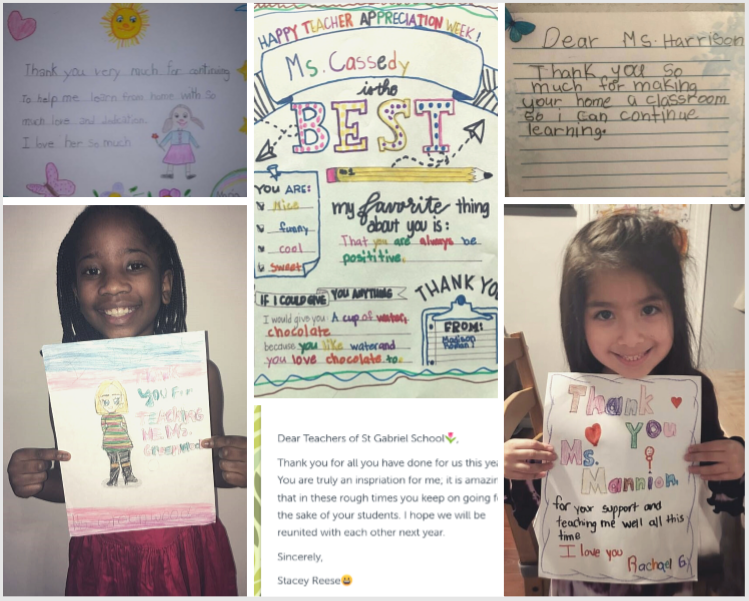 Thank you very much for continuing
to help me learn from home with so
much love and dedication.
I love her so much
HAPPY TEACHER APPRECIATION WEEK!
Ms. Cassedy
is the
BEST
YOU ARE:
Nice
funny
cool
sweet
my favorite thing
about you is:
That you are always be
posititive.
IF I COULD GIVE YOU ANYTHING
I would give you A cup of water,
chocolate
because you like waterand
you love chocolate to.
THANK YO
FROM:
Madison
Dear Ms. Harrison
Thank you so
much for making
your home a classroom
so i can continue
learning.
YOU For
TEACHING
ME Ms.
Dear Teachers of St Gabriel School🌷,
Thank you for all you have done for us this yea
You are truly an inspriation for me; it is amazin
that in these rough times you keep on going f
the sake of your students. I hope we will be
reunited with each other next year.
Sincerely,
Stacey Reese😀
Thank
You
Ms.
Mannion,
for your support and
teaching me well all this
time
I love you
Rachael G.